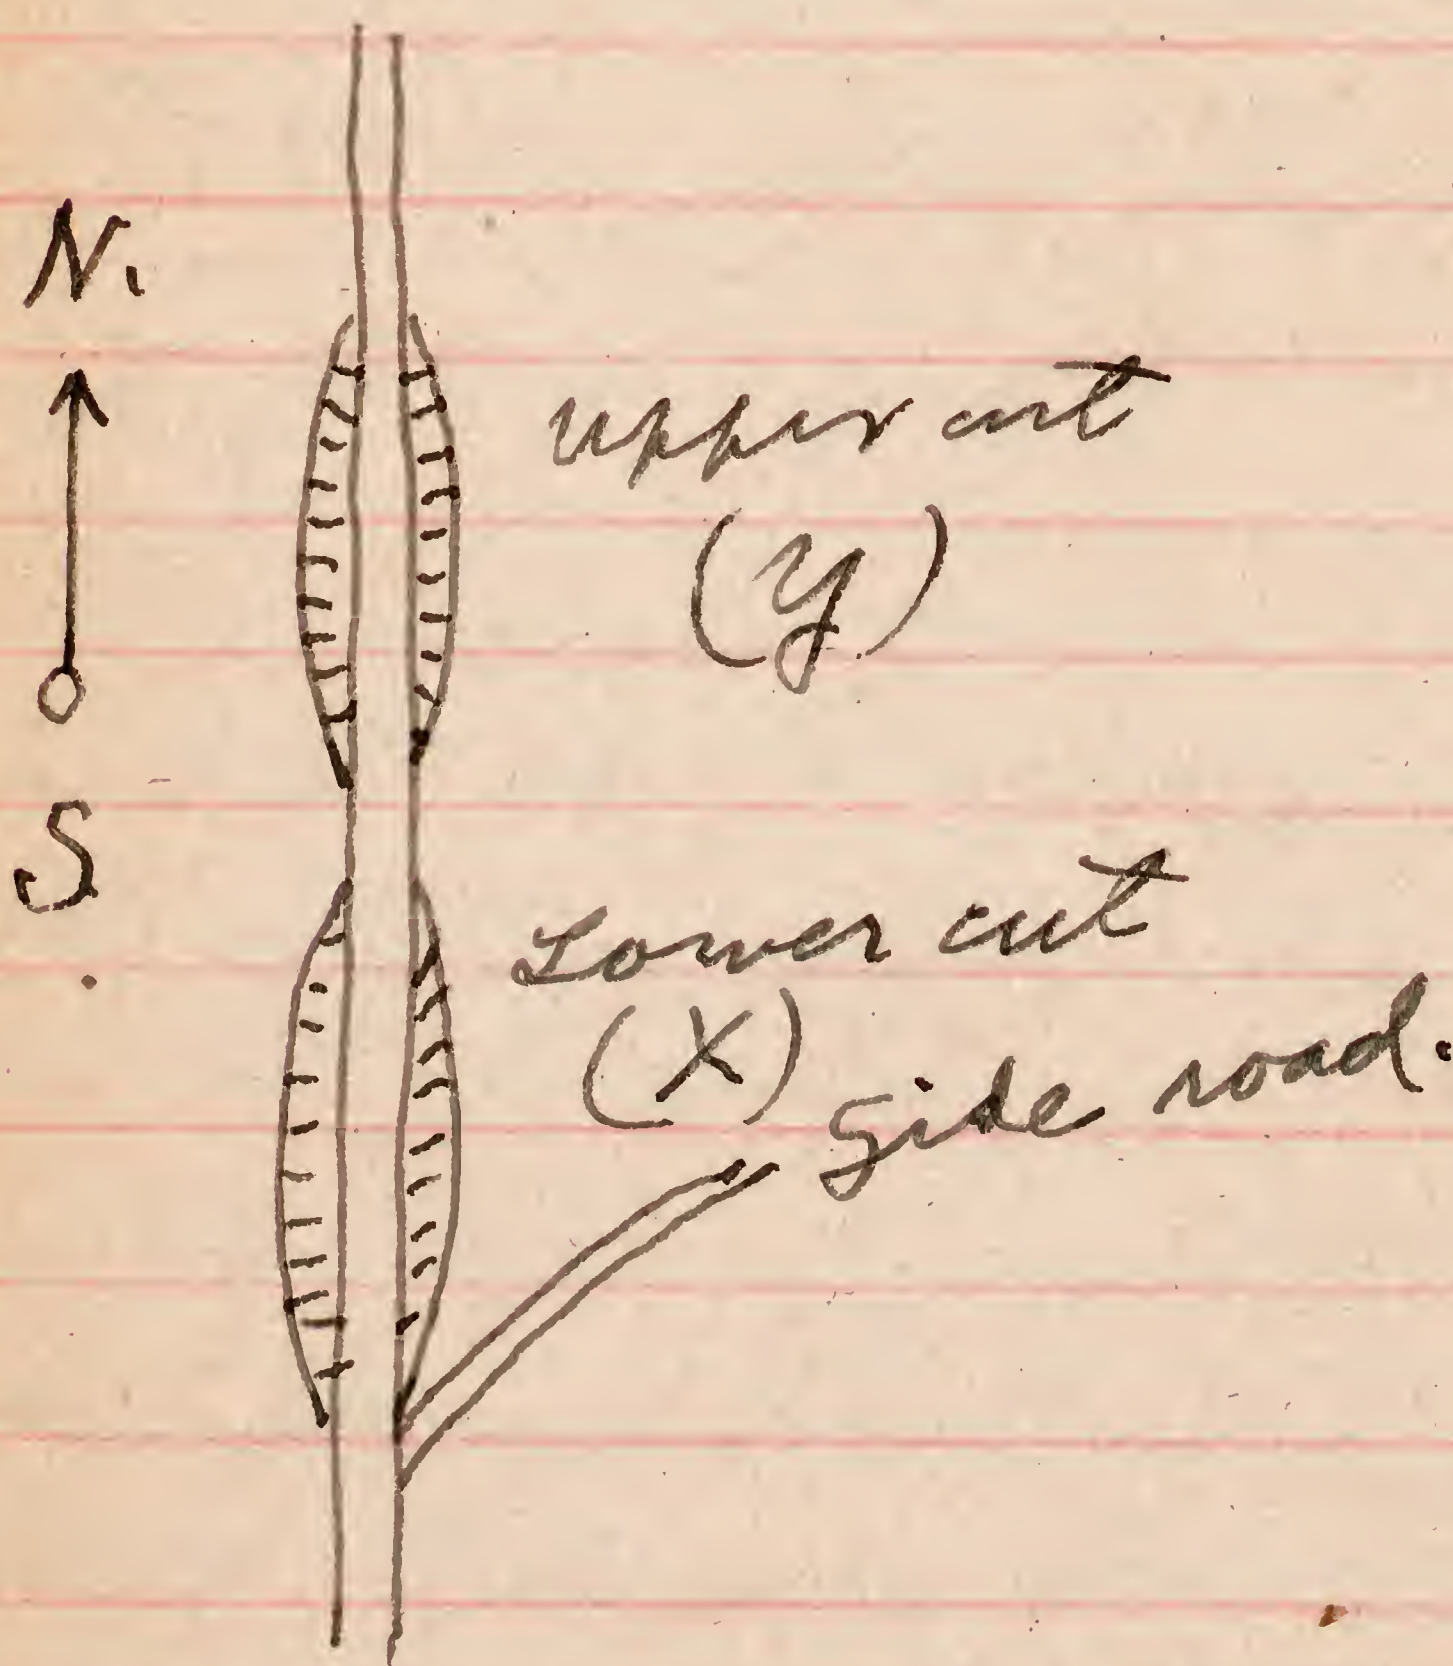 N.
upper cut
(Y)
S
Lower cut
(X)
Side road.